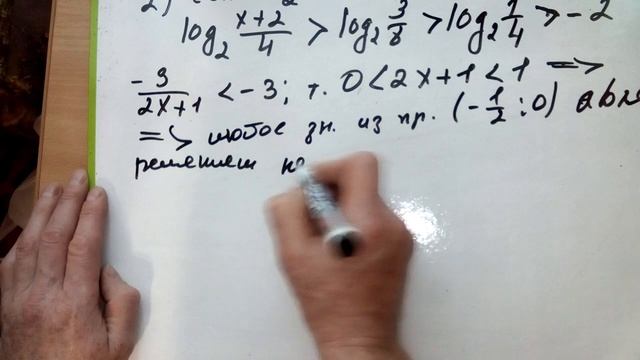 2)
log₂ (x+2)/4 > log₂ 3/8 > log₂ 1/4 > -2
-3/(2x+1) < -3; т. 0<2x+1<1 =>
=> любое зн. из пр. (-1/2; 0) явл
решением не